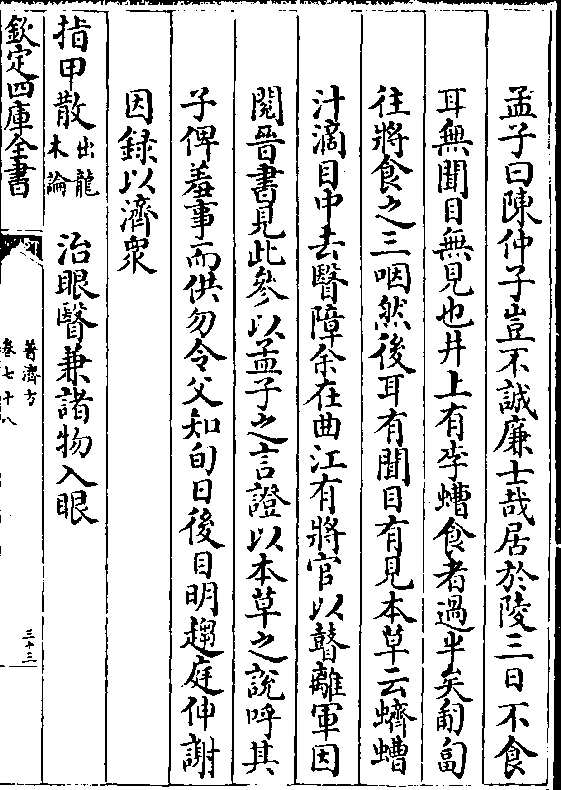 孟子曰陳仲子豈不誠廉士哉居於陵三日不食
耳無聞目無見也井上有李螬食者過半矣匍匐
往將食之三咽然後耳有聞目有見本草云蠐螬
汁滴目中去瞖障余在曲江有將官以瞽離軍因
閱晉書見此參以孟子之言證以本草之說呼其
子俾羞事而供勿令父知旬日後目明趨庭伸謝
因録以濟衆
指甲散出龍木論 治眼瞖兼諸物入眼
欽定四庫全書
普濟方
卷七十八
三十三